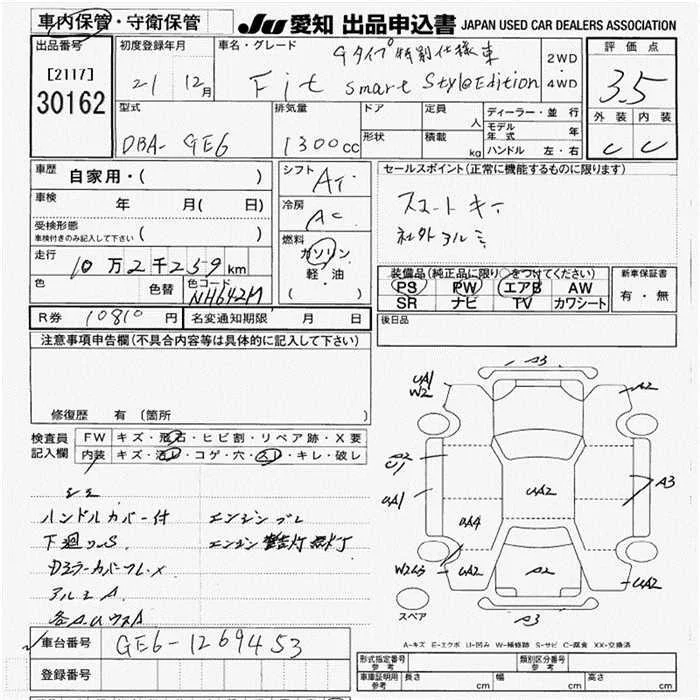 車内保管・守衛保管 JU 愛知 出品申込書 JAPAN USED CAR DEALERS ASSOCIATION
出品番号 初度登録年月 車名・グレード Gタイプ特別仕様車 2WD ・ 4WD 評価点
[2117] 30162 21 12月 Fit smart Style Edition 3.5
型式 DBA- GE6 排気量 1300cc ドア 定員 人 ディーラー・並行 外装 内装
形状 積載 kg モデル年式 年 C C
ハンドル 左・右
車歴 自家用・( ) シフト AT セールスポイント(正常に機能するものに限ります)
車検 年 月( 日) 冷房 AC スマートキー
受検形態 車検付きのみ記入して下さい ( ) 燃料 ガソリン 社外アルミ
走行 10万2千259km 軽・油
色 色替 色コード NH642M ( )
装備品(純正品に限り○をつけてください) 新車保証書
PS PW エアB AW 有・無
SR ナビ TV カワシート
R券 10810円 名変通知期限 月 日 後日品
注意事項申告欄(不具合内容等は具体的に記入して下さい)
修復歴 有 (箇所 )
検査員記入欄 FW キズ・飛石・ヒビ割・リペア跡・X要
内装 キズ・汚レ・コゲ・穴・スレ・キレ・破レ
シミ
ハンドルカバー付 エンジンブレ
下廻りS エンジン警告灯点灯
アルミA
A3
UA1
W2
A2
A2
U1
A3
UA1
UA2
UA4
UA2
A2
UA2
A3
スペア
A-キズ E-エクボ U-凹み W-補修跡 S-サビ C-腐食 XX-交換済
車台番号 GE6-1269453
登録番号
形式指定番号 参考 類別区分番号 参考
車庫証明用 参考 長さ cm 幅 cm 高さ cm